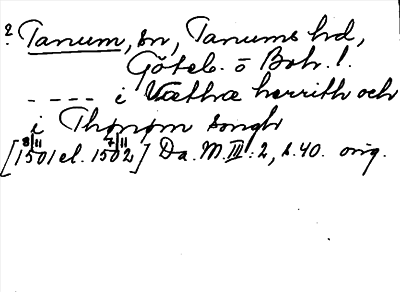 ? Tanum, sn, Tanums hd,
Göteb. o Boh. l.
---- i Wæthræ herrith och
i Thonom songh
[8/11 1501 el. 7/11 1502] Da. M. III: 2, s. 40. orig.